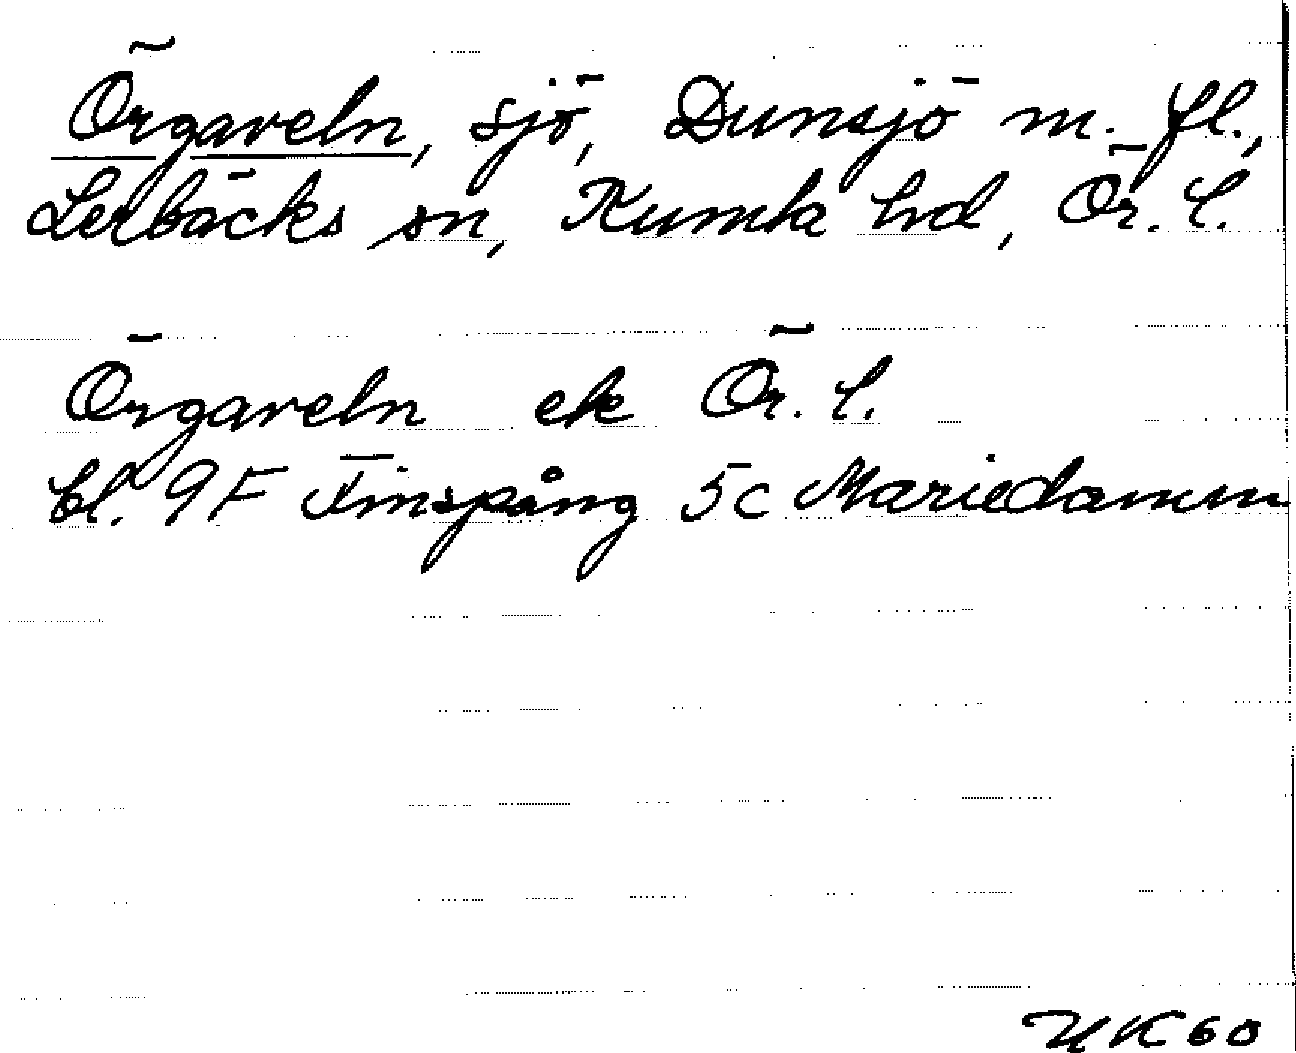 Örgaveln, sjö, Dunsjö m. fl.,
Lerbäcks sn, Kumla hd, Ör. l.
Örgaveln ek Ör. l.
bl. 9F Finspång 5c Mariedamm
UK60